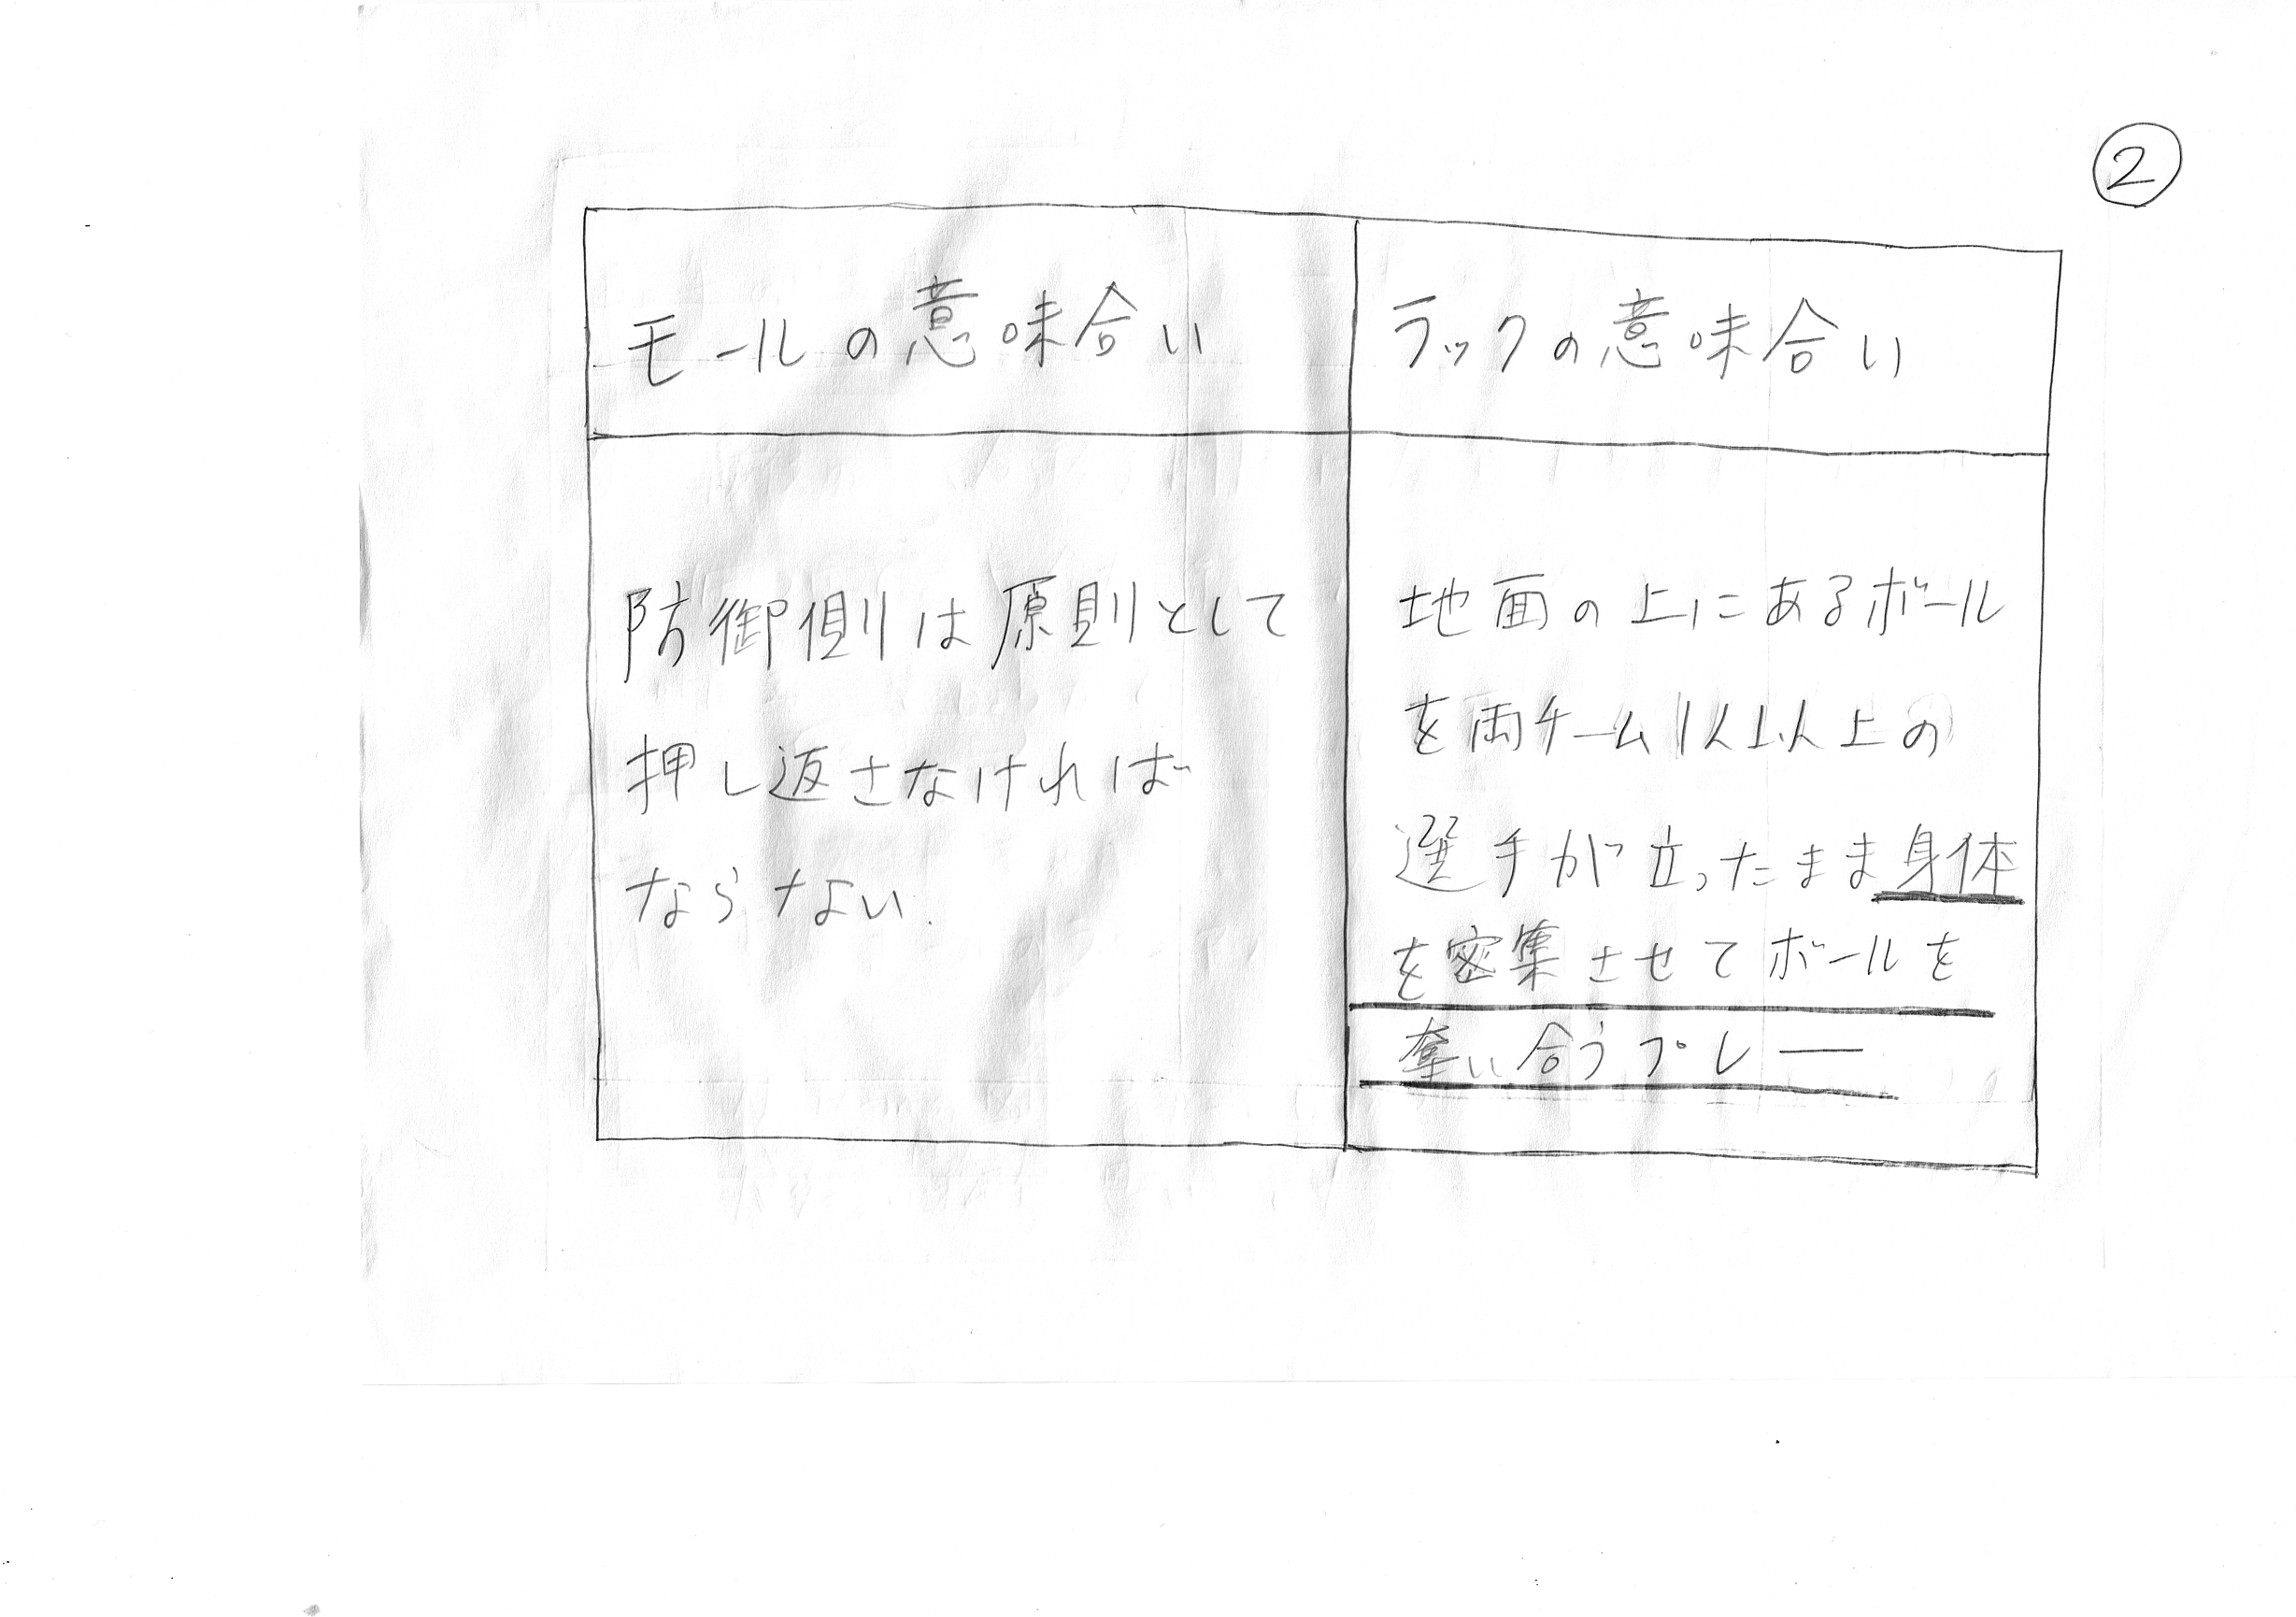 ②
モールの意味合い
ラックの意味合い
防御側は原則として
押し返さなければ
ならない.
地面の上にあるボール
を両チーム1人以上の
選手が立ったまま身体
を密集させてボールを
奪い合うプレー